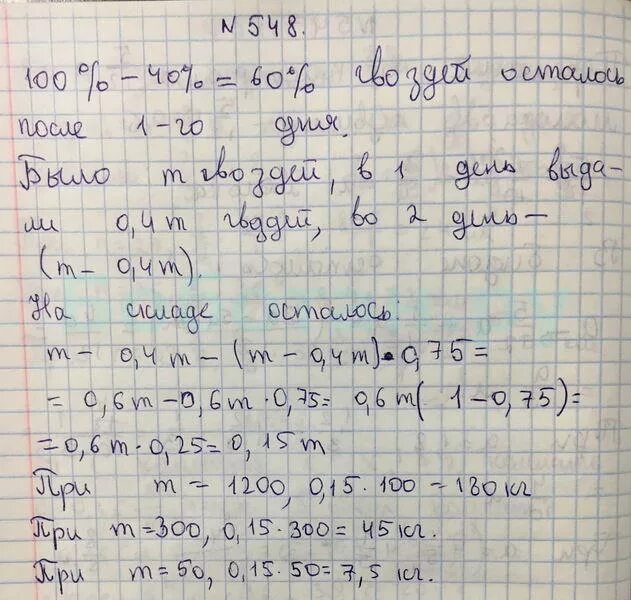 № 548.
100% - 40% = 60% гвоздей осталось
после 1-го дня.
Было m гвоздей, в 1 день выда-
ли 0,4m гвдей, во 2 день -
(m - 0,4m).
На складе осталось:
m - 0,4m - (m - 0,4m) · 0,75 =
= 0,6m - 0,6m · 0,75 = 0,6m( 1 - 0,75) =
= 0,6m · 0,25 = 0,15m
При m = 1200, 0,15 · 100 = 180 кг
При m = 300, 0,15 · 300 = 45 кг.
При m = 50, 0,15 · 50 = 7,5 кг.